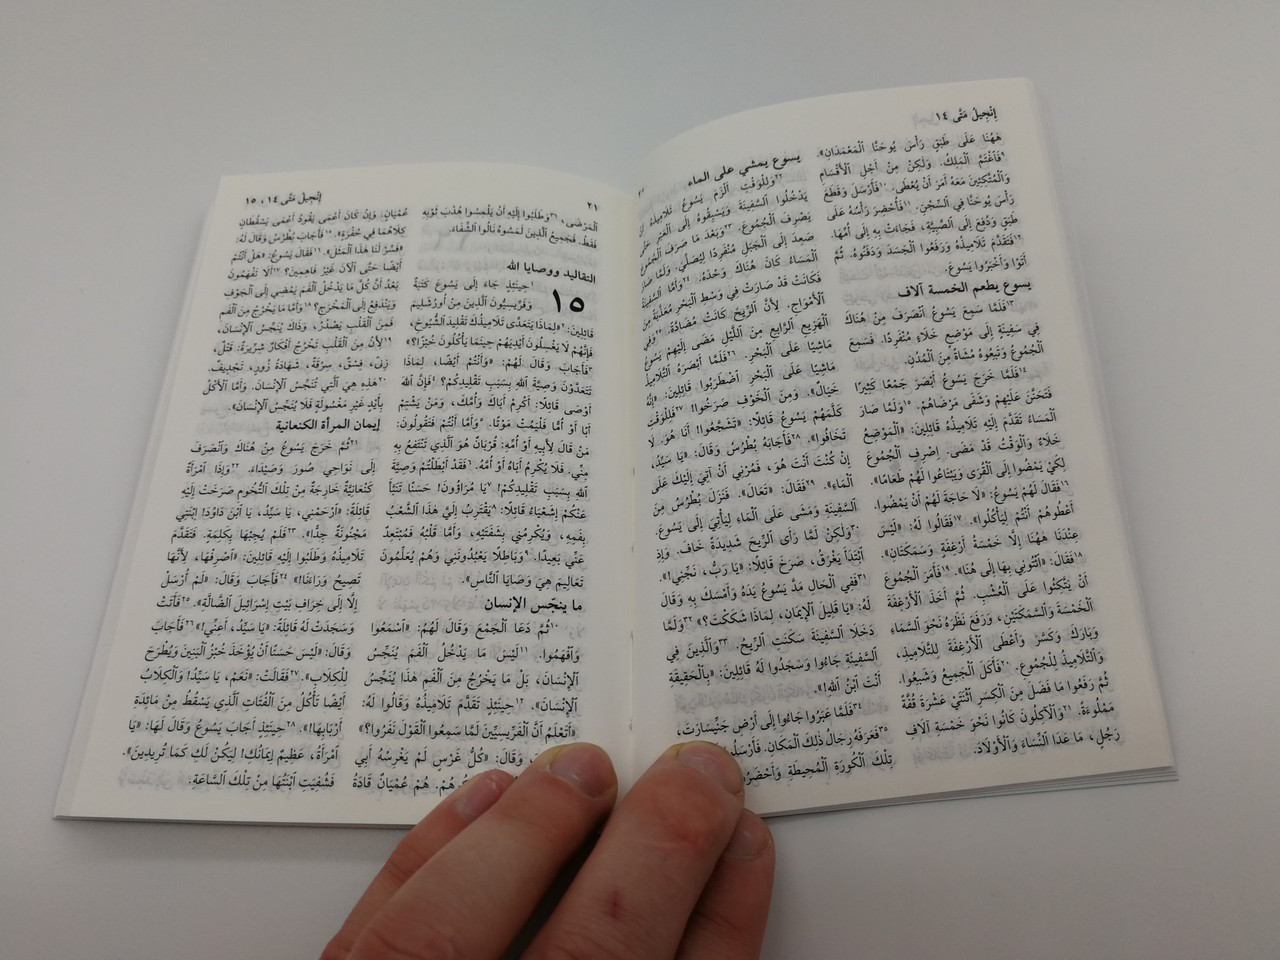 إِنْجِيلُ مَتَّى ١٤
هَهُنَا عَلَى طَبَقٍ رَأْسَ يُوحَنَّا ٱلْمَعْمَدَانِ».
٩فَٱغْتَمَّ ٱلْمَلِكُ. وَلَكِنْ مِنْ أَجْلِ ٱلْأَقْسَامِ
وَٱلْمُتَّكِئِينَ مَعَهُ أَمَرَ أَنْ يُعْطَى. ١٠فَأَرْسَلَ وَقَطَعَ
رَأْسَ يُوحَنَّا فِي ٱلسِّجْنِ. ١١فَأُحْضِرَ رَأْسُهُ عَلَى
طَبَقٍ وَدُفِعَ إِلَى ٱلصَّبِيَّةِ، فَجَاءَتْ بِهِ إِلَى أُمِّهَا.
١٢فَتَقَدَّمَ تَلَامِيذُهُ وَرَفَعُوا ٱلْجَسَدَ وَدَفَنُوهُ. ثُمَّ
أَتَوْا وَأَخْبَرُوا يَسُوعَ.
يسوع يطعم الخمسة آلاف
١٣فَلَمَّا سَمِعَ يَسُوعُ ٱنْصَرَفَ مِنْ هُنَاكَ
فِي سَفِينَةٍ إِلَى مَوْضِعٍ خَلَاءٍ مُنْفَرِدًا. فَسَمِعَ
ٱلْجُمُوعُ وَتَبِعُوهُ مُشَاةً مِنَ ٱلْمُدُنِ.
١٤فَلَمَّا خَرَجَ يَسُوعُ أَبْصَرَ جَمْعًا كَثِيرًا
فَتَحَنَّنَ عَلَيْهِمْ وَشَفَى مَرْضَاهُمْ. ١٥وَلَمَّا صَارَ
ٱلْمَسَاءُ تَقَدَّمَ إِلَيْهِ تَلَامِيذُهُ قَائِلِينَ: «ٱلْمَوْضِعُ
خَلَاءٌ وَٱلْوَقْتُ قَدْ مَضَى. اِصْرِفِ ٱلْجُمُوعَ
لِكَيْ يَمْضُوا إِلَى ٱلْقُرَى وَيَبْتَاعُوا لَهُمْ طَعَامًا».
١٦فَقَالَ لَهُمْ يَسُوعُ: «لَا حَاجَةَ لَهُمْ أَنْ يَمْضُوا.
أَعْطُوهُمْ أَنْتُمْ لِيَأْكُلُوا». ١٧فَقَالُوا لَهُ: «لَيْسَ
عِنْدَنَا هَهُنَا إِلَّا خَمْسَةُ أَرْغِفَةٍ وَسَمَكَتَانِ».
١٨فَقَالَ: «ٱئْتُونِي بِهَا إِلَى هُنَا». ١٩فَأَمَرَ ٱلْجُمُوعَ
أَنْ يَتَّكِئُوا عَلَى ٱلْعُشْبِ. ثُمَّ أَخَذَ ٱلْأَرْغِفَةَ
ٱلْخَمْسَةَ وَٱلسَّمَكَتَيْنِ، وَرَفَعَ نَظَرَهُ نَحْوَ ٱلسَّمَاءِ
وَبَارَكَ وَكَسَّرَ وَأَعْطَى ٱلْأَرْغِفَةَ لِلتَّلَامِيذِ،
وَٱلتَّلَامِيذُ لِلْجُمُوعِ. ٢٠فَأَكَلَ ٱلْجَمِيعُ وَشَبِعُوا.
ثُمَّ رَفَعُوا مَا فَضَلَ مِنَ ٱلْكِسَرِ ٱثْنَتَيْ عَشْرَةَ قُفَّةً
مَمْلُوءَةً. ٢١وَٱلْآكِلُونَ كَانُوا نَحْوَ خَمْسَةِ آلَافِ
رَجُلٍ، مَا عَدَا ٱلنِّسَاءَ وَٱلْأَوْلَادَ.
يسوع يمشي على الماء
٢٢وَلِلْوَقْتِ أَلْزَمَ يَسُوعُ تَلَامِيذَهُ أَنْ
يَدْخُلُوا ٱلسَّفِينَةَ وَيَسْبِقُوهُ إِلَى ٱلْعَبْرِ حَتَّى
يَصْرِفَ ٱلْجُمُوعَ. ٢٣وَبَعْدَ مَا صَرَفَ ٱلْجُمُوعَ
صَعِدَ إِلَى ٱلْجَبَلِ مُنْفَرِدًا لِيُصَلِّيَ. وَلَمَّا صَارَ
ٱلْمَسَاءُ كَانَ هُنَاكَ وَحْدَهُ. ٢٤وَأَمَّا ٱلسَّفِينَةُ
فَكَانَتْ قَدْ صَارَتْ فِي وَسْطِ ٱلْبَحْرِ مُعَذَّبَةً مِنَ
ٱلْأَمْوَاجِ. لِأَنَّ ٱلرِّيحَ كَانَتْ مُضَادَّةً. ٢٥وَفِي
ٱلْهَزِيعِ ٱلرَّابِعِ مِنَ ٱللَّيْلِ مَضَى إِلَيْهِمْ يَسُوعُ
مَاشِيًا عَلَى ٱلْبَحْرِ. ٢٦فَلَمَّا أَبْصَرَهُ ٱلتَّلَامِيذُ
مَاشِيًا عَلَى ٱلْبَحْرِ ٱضْطَرَبُوا قَائِلِينَ: «إِنَّهُ
خَيَالٌ». وَمِنَ ٱلْخَوْفِ صَرَخُوا! ٢٧فَلِلْوَقْتِ
كَلَّمَهُمْ يَسُوعُ قَائِلًا: «تَشَجَّعُوا! أَنَا هُوَ. لَا
تَخَافُوا». ٢٨فَأَجَابَهُ بُطْرُسُ وَقَالَ: «يَا سَيِّدُ،
إِنْ كُنْتَ أَنْتَ هُوَ، فَمُرْنِي أَنْ آتِيَ إِلَيْكَ عَلَى
ٱلْمَاءِ». ٢٩فَقَالَ: «تَعَالَ». فَنَزَلَ بُطْرُسُ مِنَ
ٱلسَّفِينَةِ وَمَشَى عَلَى ٱلْمَاءِ لِيَأْتِيَ إِلَى يَسُوعَ.
٣٠وَلَكِنْ لَمَّا رَأَى ٱلرِّيحَ شَدِيدَةً خَافَ. وَإِذِ
ٱبْتَدَأَ يَغْرَقُ، صَرَخَ قَائِلًا: «يَا رَبُّ، نَجِّنِي!».
٣١فَفِي ٱلْحَالِ مَدَّ يَسُوعُ يَدَهُ وَأَمْسَكَ بِهِ وَقَالَ
لَهُ: «يَا قَلِيلَ ٱلْإِيمَانِ، لِمَاذَا شَكَكْتَ؟» ٣٢وَلَمَّا
دَخَلَا ٱلسَّفِينَةَ سَكَنَتِ ٱلرِّيحُ. ٣٣وَٱلَّذِينَ فِي
ٱلسَّفِينَةِ جَاءُوا وَسَجَدُوا لَهُ قَائِلِينَ: «بِٱلْحَقِيقَةِ
أَنْتَ ٱبْنُ ٱللهِ!».
٣٤فَلَمَّا عَبَرُوا جَاءُوا إِلَى أَرْضِ جَنِّيسَارَتَ،
٣٥فَعَرَفَهُ رِجَالُ ذَلِكَ ٱلْمَكَانِ. فَأَرْسَلُوا
تِلْكَ ٱلْكُورَةِ ٱلْمُحِيطَةِ وَأَحْضَرُوا
٢١
إِنْجِيلُ مَتَّى ١٤، ١٥
ٱلْمَرْضَى، ٣٦وَطَلَبُوا إِلَيْهِ أَنْ يَلْمِسُوا هُدْبَ ثَوْبِهِ
فَقَطْ. فَجَمِيعُ ٱلَّذِينَ لَمَسُوهُ نَالُوا ٱلشِّفَاءَ.
التقاليد ووصايا الله
١٥
١حِينَئِذٍ جَاءَ إِلَى يَسُوعَ كَتَبَةٌ
وَفَرِّيسِيُّونَ ٱلَّذِينَ مِنْ أُورُشَلِيمَ
قَائِلِينَ: ٢«لِمَاذَا يَتَعَدَّى تَلَامِيذُكَ تَقْلِيدَ ٱلشُّيُوخِ،
فَإِنَّهُمْ لَا يَغْسِلُونَ أَيْدِيَهُمْ حِينَمَا يَأْكُلُونَ خُبْزًا؟»
٣فَأَجَابَ وَقَالَ لَهُمْ: «وَأَنْتُمْ أَيْضًا، لِمَاذَا
تَتَعَدَّوْنَ وَصِيَّةَ ٱللهِ بِسَبَبِ تَقْلِيدِكُمْ؟ ٤فَإِنَّ ٱللهَ
أَوْصَى قَائِلًا: أَكْرِمْ أَبَاكَ وَأُمَّكَ، وَمَنْ يَشْتِمْ
أَبًا أَوْ أُمًّا فَلْيَمُتْ مَوْتًا. ٥وَأَمَّا أَنْتُمْ فَتَقُولُونَ:
مَنْ قَالَ لِأَبِيهِ أَوْ أُمِّهِ: قُرْبَانٌ هُوَ ٱلَّذِي تَنْتَفِعُ بِهِ
مِنِّي. فَلَا يُكْرِمُ أَبَاهُ أَوْ أُمَّهُ. ٦فَقَدْ أَبْطَلْتُمْ وَصِيَّةَ
ٱللهِ بِسَبَبِ تَقْلِيدِكُمْ! ٧يَا مُرَاؤُونَ! حَسَنًا تَنَبَّأَ
عَنْكُمْ إِشَعْيَاءُ قَائِلًا: ٨يَقْتَرِبُ إِلَيَّ هَذَا ٱلشَّعْبُ
بِفَمِهِ، وَيُكْرِمُنِي بِشَفَتَيْهِ، وَأَمَّا قَلْبُهُ فَمُبْتَعِدٌ
عَنِّي بَعِيدًا. ٩وَبَاطِلًا يَعْبُدُونَنِي وَهُمْ يُعَلِّمُونَ
تَعَالِيمَ هِيَ وَصَايَا ٱلنَّاسِ».
ما ينجّس الإنسان
١٠ثُمَّ دَعَا ٱلْجَمْعَ وَقَالَ لَهُمُ: «ٱسْمَعُوا
وَٱفْهَمُوا. ١١لَيْسَ مَا يَدْخُلُ ٱلْفَمَ يُنَجِّسُ
ٱلْإِنْسَانَ، بَلْ مَا يَخْرُجُ مِنَ ٱلْفَمِ هَذَا يُنَجِّسُ
ٱلْإِنْسَانَ». ١٢حِينَئِذٍ تَقَدَّمَ تَلَامِيذُهُ وَقَالُوا لَهُ:
«أَتَعْلَمُ أَنَّ ٱلْفَرِّيسِيِّينَ لَمَّا سَمِعُوا ٱلْقَوْلَ نَفَرُوا؟»
وَقَالَ: «كُلُّ غَرْسٍ لَمْ يَغْرِسْهُ أَبِي
هُمْ. هُمْ عُمْيَانٌ قَادَةُ
عُمْيَانٍ. وَإِنْ كَانَ أَعْمَى يَقُودُ أَعْمَى يَسْقُطَانِ
كِلَاهُمَا فِي حُفْرَةٍ». ١٥فَأَجَابَ بُطْرُسُ وَقَالَ لَهُ:
«فَسِّرْ لَنَا هَذَا ٱلْمَثَلَ». ١٦فَقَالَ يَسُوعُ: «هَلْ أَنْتُمْ
أَيْضًا حَتَّى ٱلْآنَ غَيْرُ فَاهِمِينَ؟ ١٧أَلَا تَفْهَمُونَ
بَعْدُ أَنَّ كُلَّ مَا يَدْخُلُ ٱلْفَمَ يَمْضِي إِلَى ٱلْجَوْفِ
وَيَنْدَفِعُ إِلَى ٱلْمَخْرَجِ؟ ١٨وَأَمَّا مَا يَخْرُجُ مِنَ ٱلْفَمِ
فَمِنَ ٱلْقَلْبِ يَصْدُرُ، وَذَاكَ يُنَجِّسُ ٱلْإِنْسَانَ،
١٩لِأَنْ مِنَ ٱلْقَلْبِ تَخْرُجُ أَفْكَارٌ شِرِّيرَةٌ: قَتْلٌ،
زِنًى، فِسْقٌ، سِرْقَةٌ، شَهَادَةُ زُورٍ، تَجْدِيفٌ.
٢٠هَذِهِ هِيَ ٱلَّتِي تُنَجِّسُ ٱلْإِنْسَانَ. وَأَمَّا ٱلْأَكْلُ
بِأَيْدٍ غَيْرِ مَغْسُولَةٍ فَلَا يُنَجِّسُ ٱلْإِنْسَانَ».
إيمان المرأة الكنعانية
٢١ثُمَّ خَرَجَ يَسُوعُ مِنْ هُنَاكَ وَٱنْصَرَفَ
إِلَى نَوَاحِي صُورَ وَصَيْدَاءَ. ٢٢وَإِذَا ٱمْرَأَةٌ
كَنْعَانِيَّةٌ خَارِجَةٌ مِنْ تِلْكَ ٱلتُّخُومِ صَرَخَتْ إِلَيْهِ
قَائِلَةً: «ٱرْحَمْنِي، يَا سَيِّدُ، يَا ٱبْنَ دَاوُدَ! اِبْنَتِي
مَجْنُونَةٌ جِدًّا». ٢٣فَلَمْ يُجِبْهَا بِكَلِمَةٍ. فَتَقَدَّمَ
تَلَامِيذُهُ وَطَلَبُوا إِلَيْهِ قَائِلِينَ: «ٱصْرِفْهَا، لِأَنَّهَا
تَصِيحُ وَرَاءَنَا!» ٢٤فَأَجَابَ وَقَالَ: «لَمْ أُرْسَلْ
إِلَّا إِلَى خِرَافِ بَيْتِ إِسْرَائِيلَ ٱلضَّالَّةِ». ٢٥فَأَتَتْ
وَسَجَدَتْ لَهُ قَائِلَةً: «يَا سَيِّدُ، أَعِنِّي!» ٢٦فَأَجَابَ
وَقَالَ: «لَيْسَ حَسَنًا أَنْ يُؤْخَذَ خُبْزُ ٱلْبَنِينَ وَيُطْرَحَ
لِلْكِلَابِ». ٢٧فَقَالَتْ: «نَعَمْ، يَا سَيِّدُ! وَٱلْكِلَابُ
أَيْضًا تَأْكُلُ مِنَ ٱلْفُتَاتِ ٱلَّذِي يَسْقُطُ مِنْ مَائِدَةِ
أَرْبَابِهَا!». ٢٨حِينَئِذٍ أَجَابَ يَسُوعُ وَقَالَ لَهَا: «يَا
ٱمْرَأَةُ، عَظِيمٌ إِيمَانُكِ! لِيَكُنْ لَكِ كَمَا تُرِيدِينَ».
فَشُفِيَتِ ٱبْنَتُهَا مِنْ تِلْكَ ٱلسَّاعَةِ.